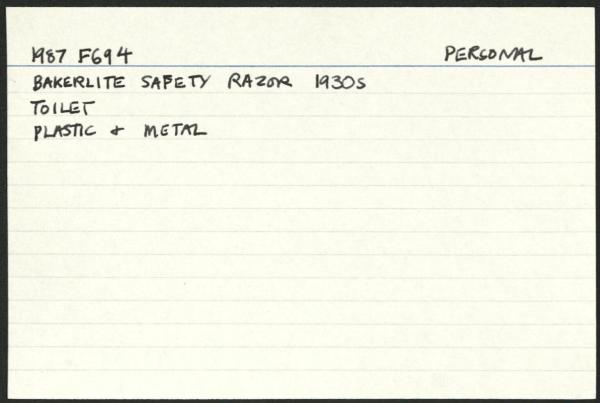 1987 F694 PERSONAL
BAKERLITE SAFETY RAZOR 1930s
TOILET
PLASTIC & METAL